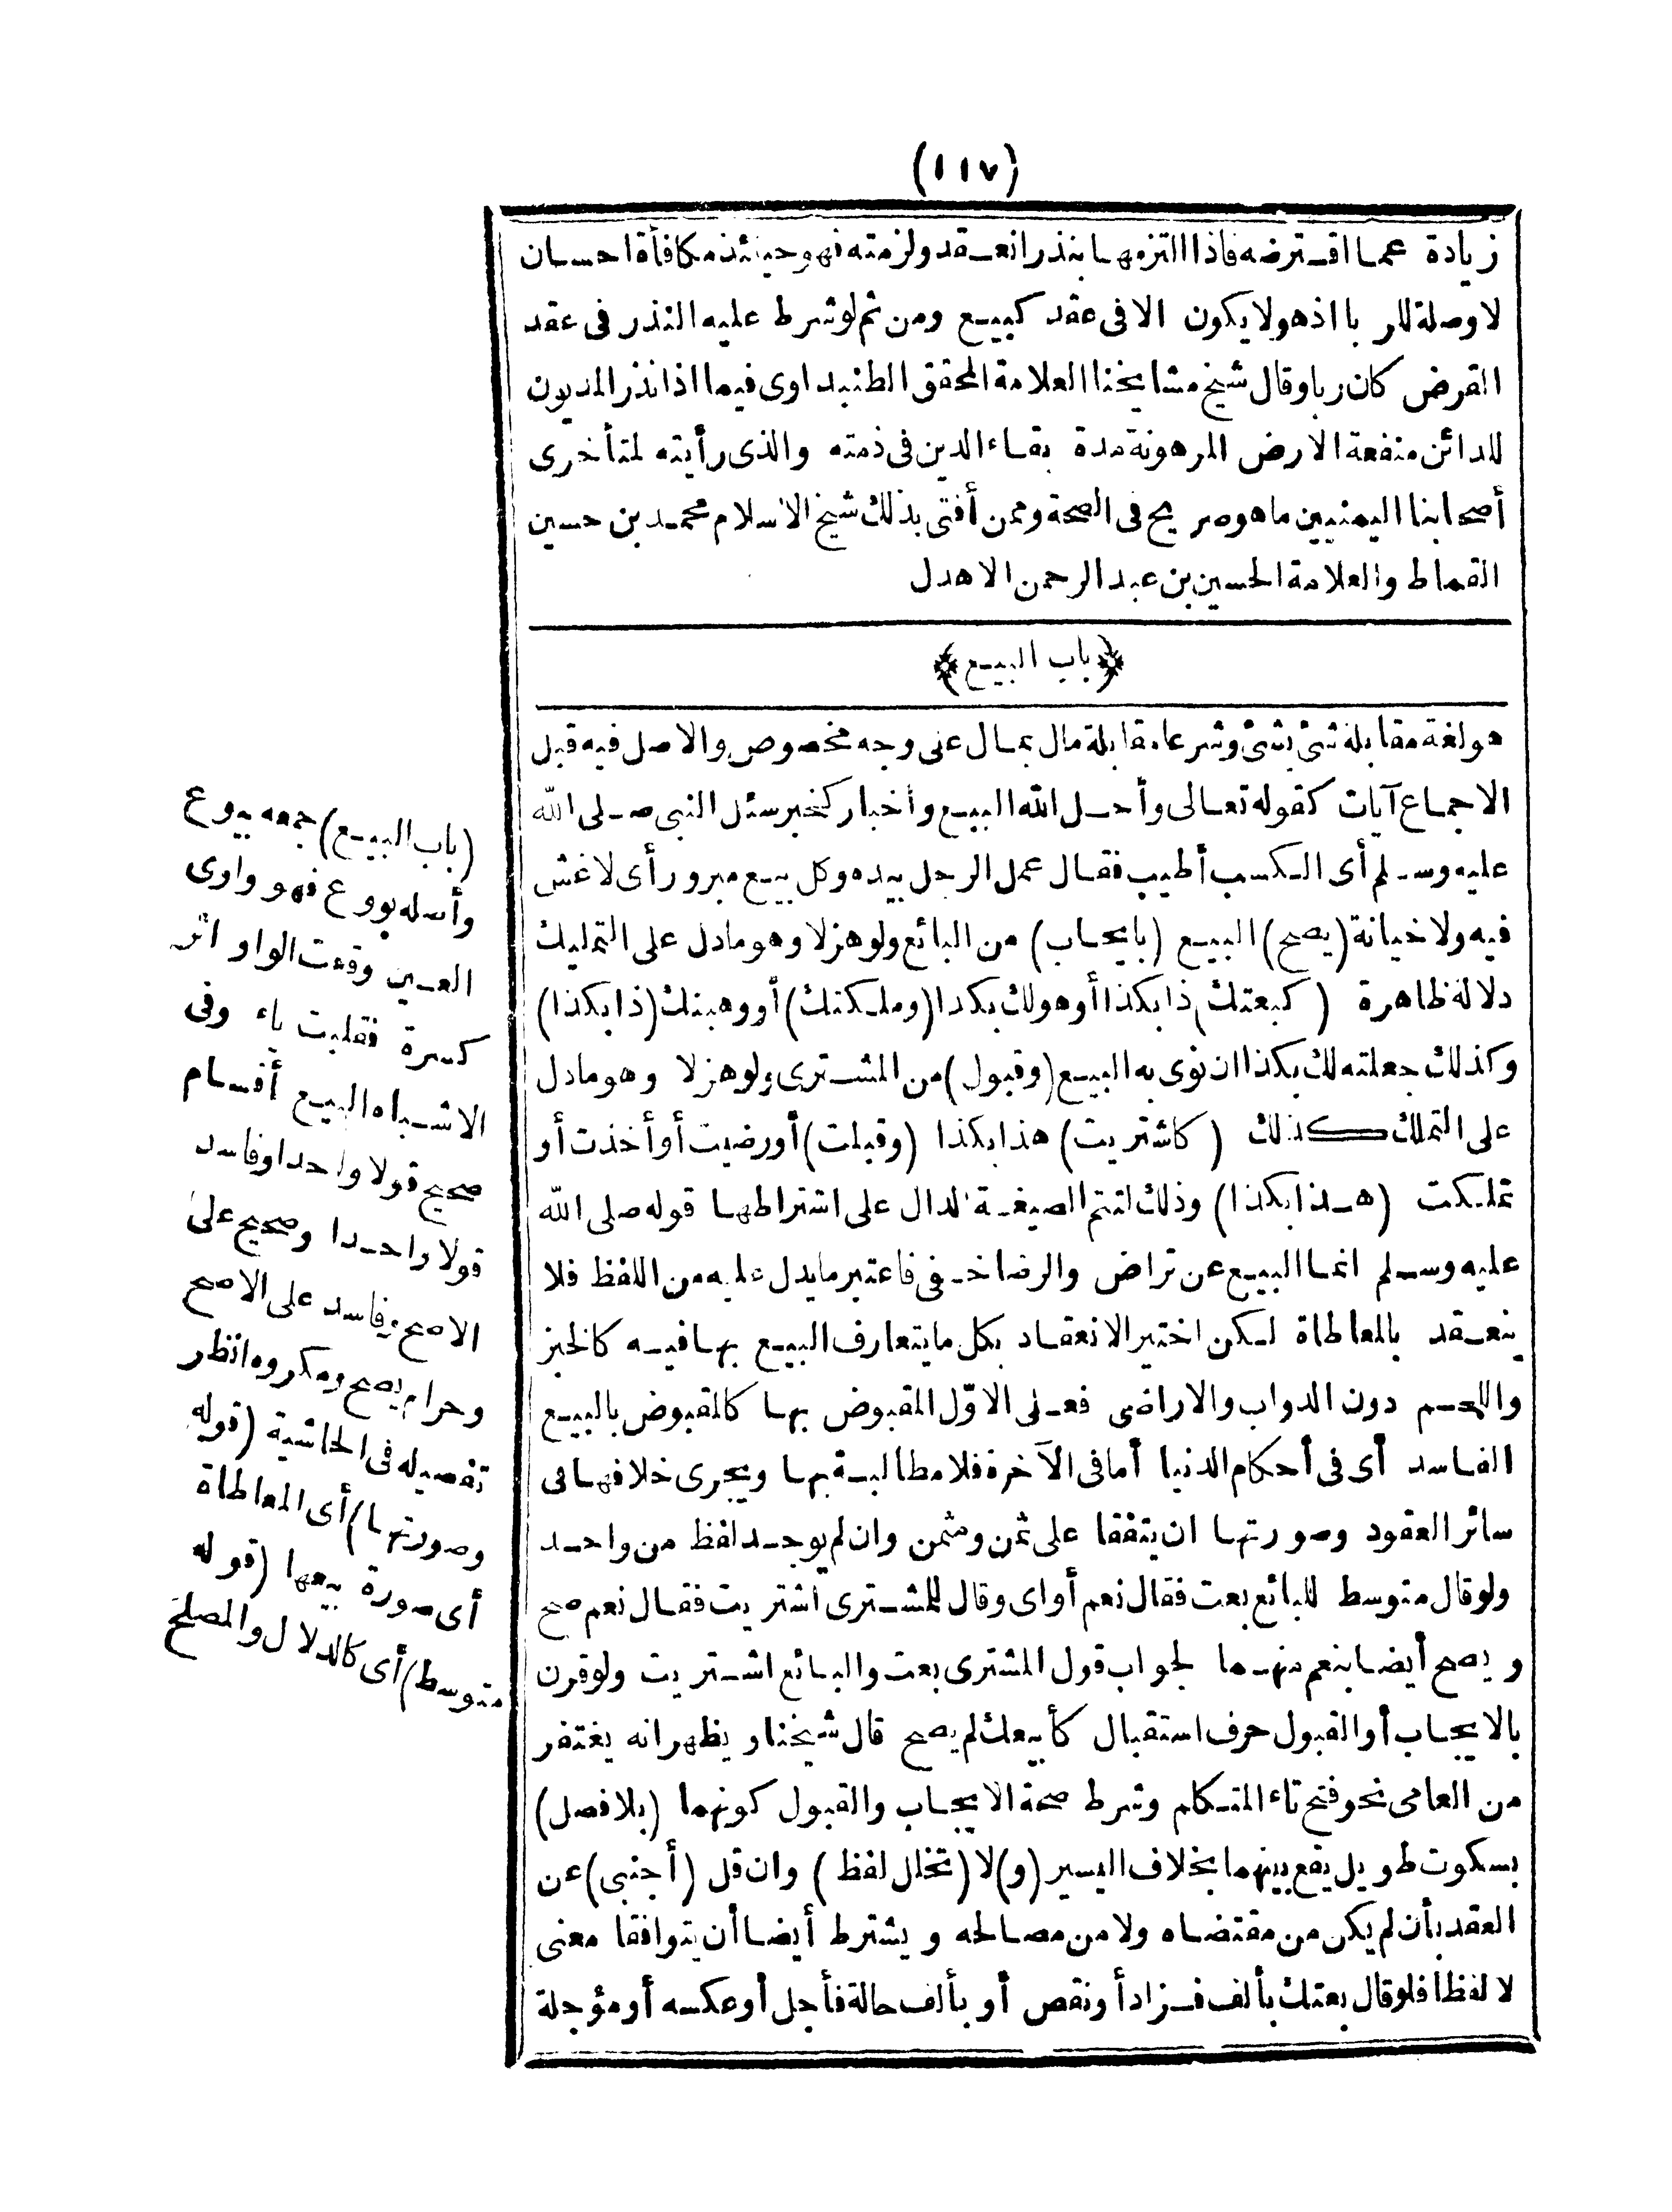 (١١٧)
زيادة عما اقترضه فاذا التزمها بنذر انعقد ولزمته فهو حينئذ مكافأة احسان
لا وصلة للربا اذ هو لا يكون الا فى عقد كبيع ومن ثم لو شرط عليه النذر فى عقد
القرض كان ربا وقال شيخ مشايخنا العلامة المحقق الطنبداوى فيما اذا نذر المديون
للدائن منفعة الارض المرهونة مدة بقاء الدين فى ذمته والذى رأيته لمتأخرى
أصحابنا اليمنيين ما هو صريح فى الصحة وممن أفتى بذلك شيخ الاسلام محمد بن حسين
القماط والعلامة الحسين بن عبد الرحمن الاهدل
﴿باب البيع﴾
هو لغة مقابلة شئ بشئ وشرعا مقابلة مال بمال على وجه مخصوص والاصل فيه قبل
الاجماع آيات كقوله تعالى وأحل الله البيع وأخبار كخبر سئل النبى صلى الله
عليه وسلم أى الكسب أطيب فقال عمل الرجل بيده وكل بيع مبرور أى لا غش
فيه ولا خيانة (يصح) البيع (بايجاب) من البائع ولو هزلا وهو ما دل على التمليك
دلالة ظاهرة (كبعتك) ذا بكذا أو هو لك بكذا (وملكتك) أو وهبتك (ذا بكذا)
وكذلك جعلته لك بكذا ان نوى به البيع (وقبول) من المشترى ولو هزلا وهو ما دل
على التملك كذلك (كاشتريت) هذا بكذا (وقبلت) أو رضيت أو أخذت أو
تملكت (هذا بكذا) وذلك لتتم الصيغة الدال على اشتراطها قوله صلى الله
عليه وسلم انما البيع عن تراض والرضا خفى فاعتبر ما يدل عليه من اللفظ فلا
ينعقد بالمعاطاة لكن اختير الانعقاد بكل ما يتعارف البيع بها فيه كالخبز
واللحم دون الدواب والاراضى فعلى الاوّل المقبوض بها كالمقبوض بالبيع
الفاسد أى فى أحكام الدنيا أما فى الآخرة فلا مطالبة بها ويجرى خلافها فى
سائر العقود وصورتها ان يتفقا على ثمن ومثمن وان لم يوجد لفظ من واحد
ولو قال متوسط للبائع بعت فقال نعم أو اى وقال للمشترى اشتريت فقال نعم صح
ويصح أيضا بنعم منهما لجواب قول المشترى بعت والبائع اشتريت ولو قرن
بالايجاب أو القبول حرف استقبال كأبيعك لم يصح قال شيخنا ويظهر انه يغتفر
من العامى نحو فتح تاء المتكلم وشرط صحة الايجاب والقبول كونهما (بلا فصل)
بسكوت طويل يقع بينهما بخلاف اليسير (و) لا (تخلل لفظ) وان قل (أجنبى) عن
العقد بأن لم يكن من مقتضاه ولا من مصالحه ويشترط أيضا أن يتوافقا معنى
لا لفظا فلو قال بعتك بألف فزاد أو نقص أو بألف حالة فأجل أو عكسه أو مؤجلة
(باب البيع) جمعه بيوع
وأصله بووع فهو واوى
العين وقعت الواو اثر
كسرة فقلبت ياء وفى
الاشباه البيع أقسام
صحيح قولا واحدا وفاسد
قولا واحدا وصحيح على
الاصح وفاسد على الاصح
وحرام يصح ومكروه انظر
تفصيله فى الحاشية (قوله
وصورتها) أى المعاطاة
أى صورة بيعها (قوله
متوسط) أى كالدلال والمصلح